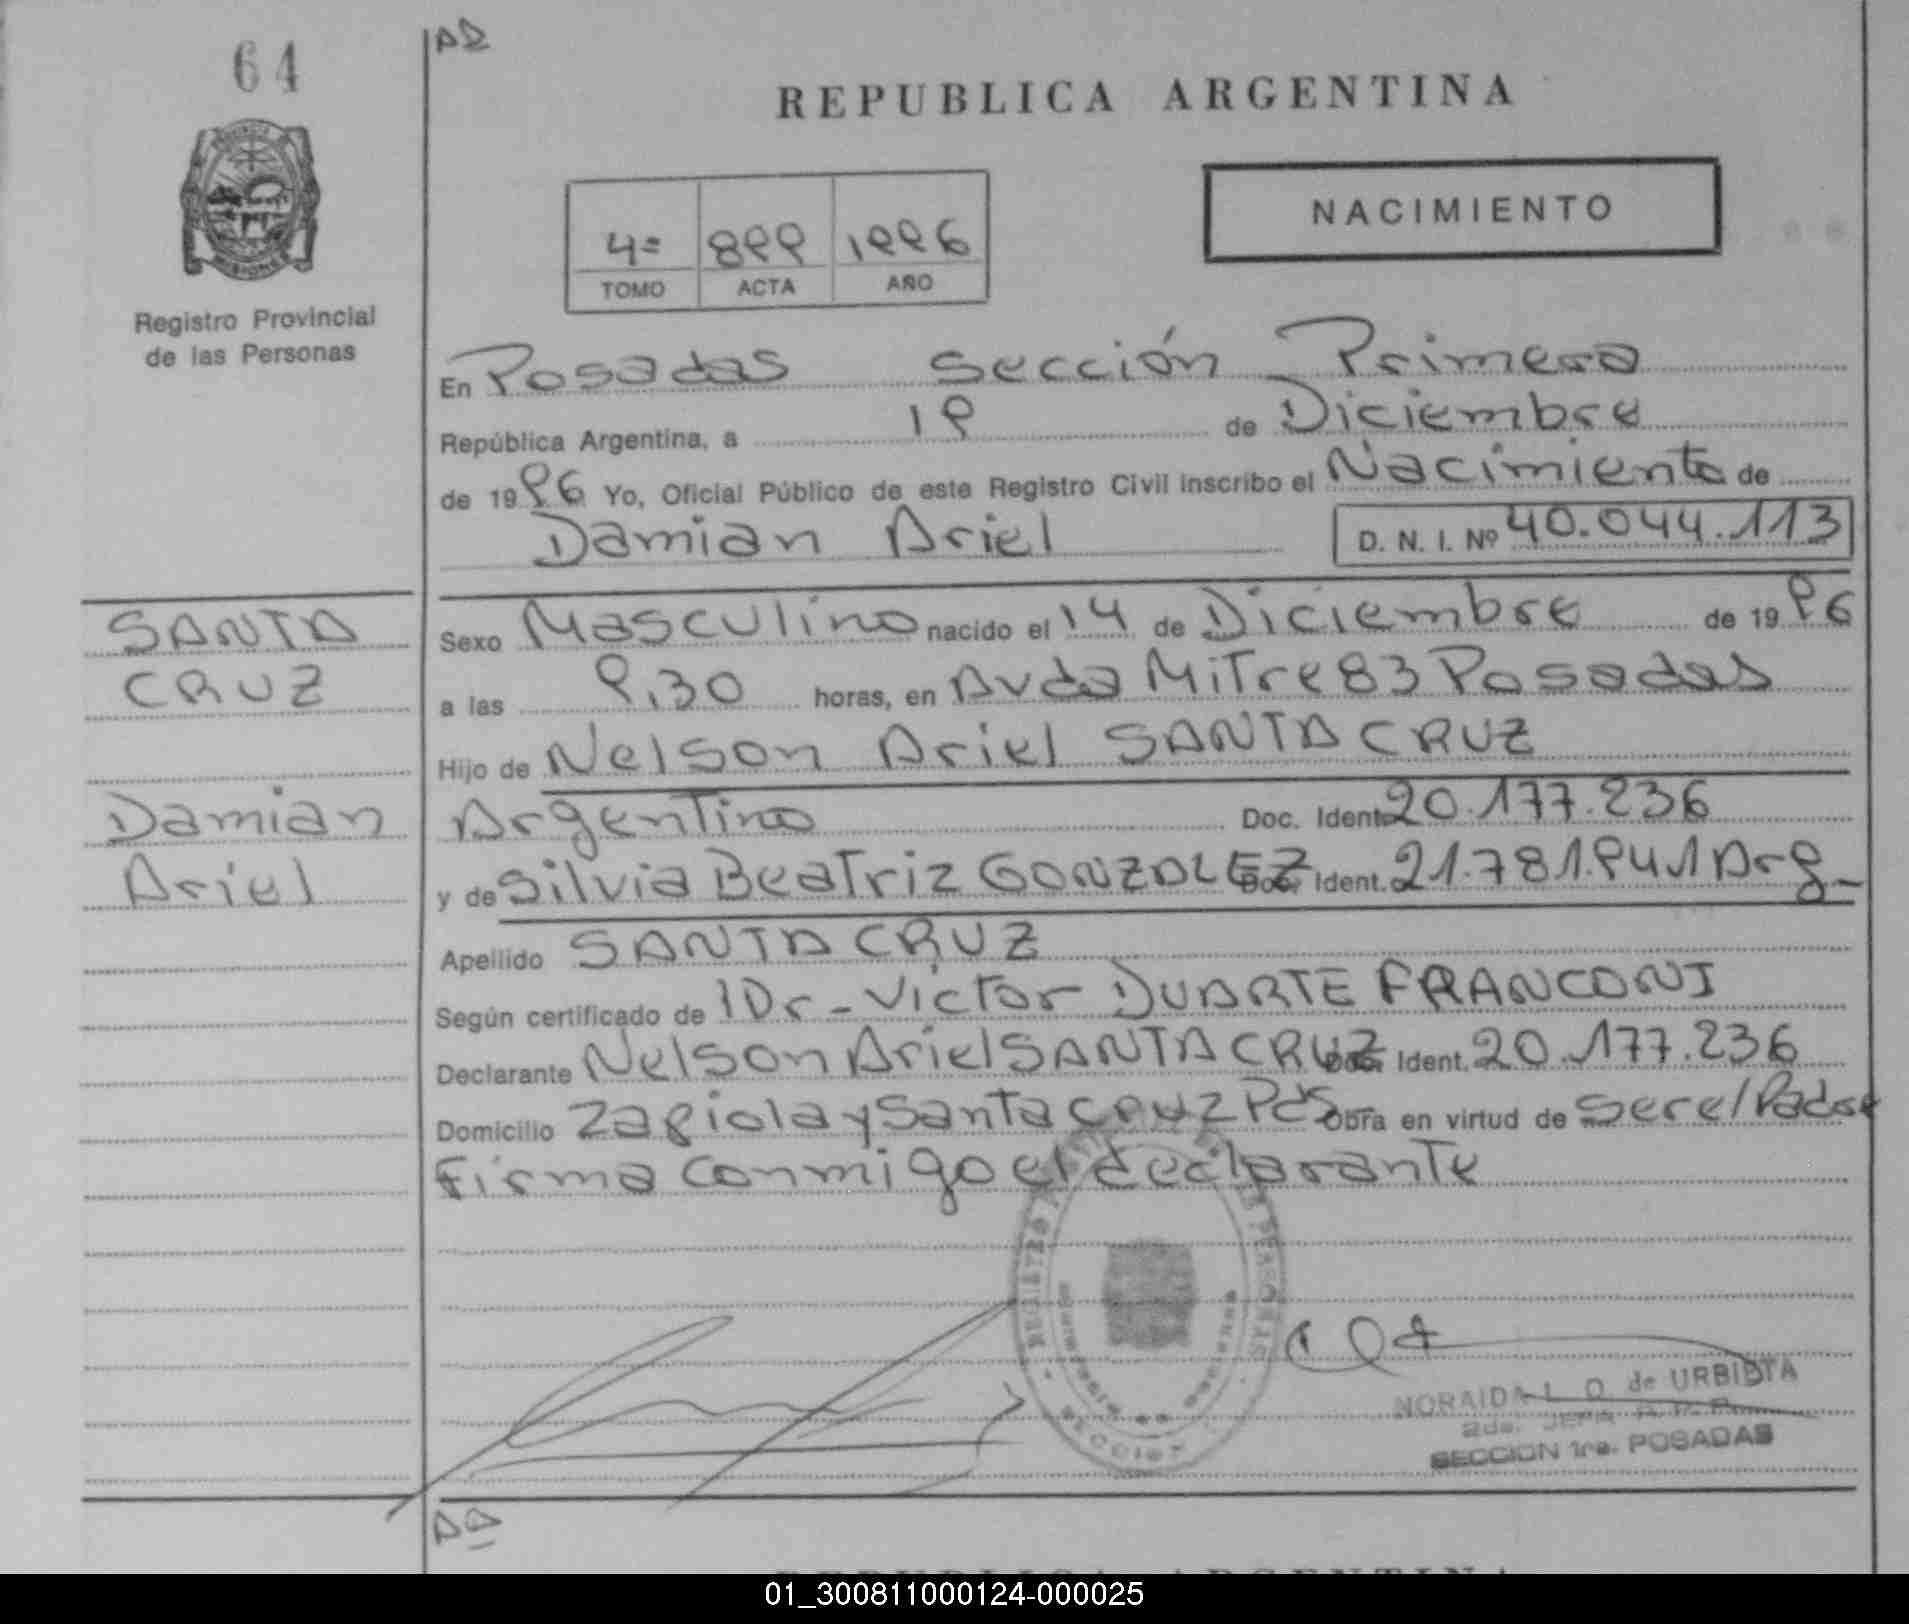 64
REPUBLICA ARGENTINA
NACIMIENTO
4º 899 1996
TOMO ACTA AÑO
MISIONES
Registro Provincial
de las Personas
En Posadas sección Primera
República Argentina, a 19 de Diciembre
de 1996 Yo, Oficial Público de este Registro Civil inscribo el Nacimiento de
Damian Ariel D. N. I. Nº 40.044.113
SANTA
CRUZ
Damian
Ariel
Sexo Masculino nacido el 14 de Diciembre de 1996
a las 9,30 horas, en Avda Mitre 83 Posadas
Hijo de Nelson Ariel SANTA CRUZ
Argentino Doc. Ident. 20.177.236
y de Silvia Beatriz GONZALEZ Doc. Ident. 21.781.941 Arg_
Apellido SANTA CRUZ
Según certificado de 1Dr - Victor DUARTE FRANCONI
Declarante Nelson Ariel SANTA CRUZ Doc. Ident. 20.177.236
Domicilio y Santa Cruz Pds Obra en virtud de ser el Padre
Firma conmigo el declarante
REGISTRO DE LAS PERSONAS
SECCION
NORAIDA L. O. de URBIETA
2da. JEFA R. P. P.
SECCION 1ra. POSADAS
REPUBLICA ARGENTINA
01_300811000124-000025